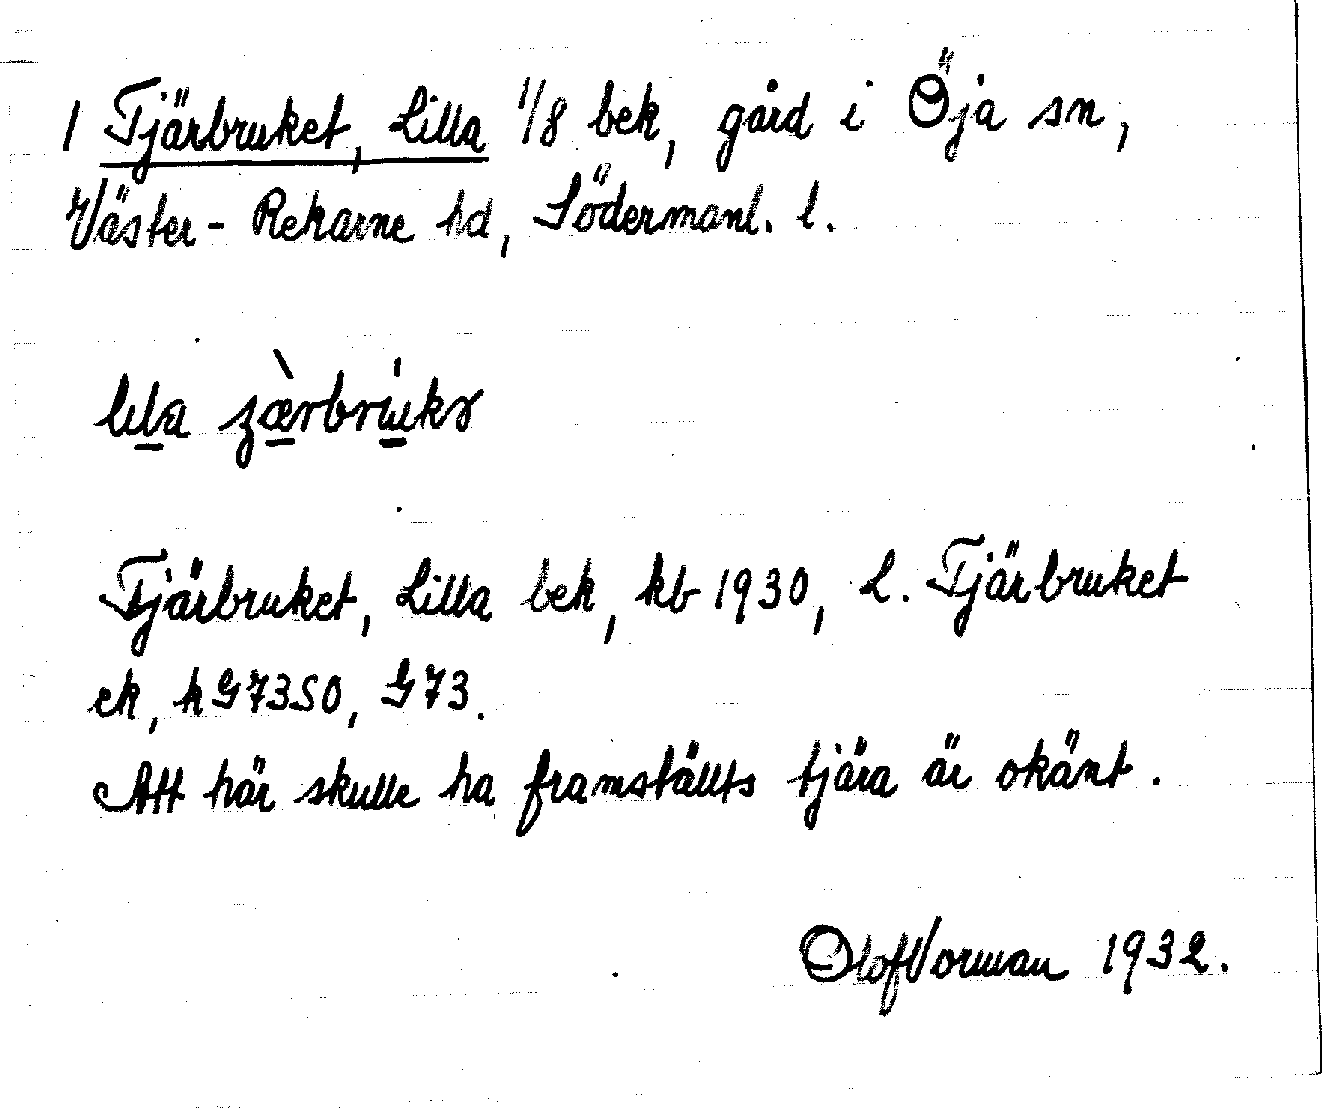 1 Tjärbruket, Lilla 1/8 bek, gård i Öja sn,
Väster-Rekarne hd, Södermanl. l.
lıla zæ̀rbrúkɤ
Tjärbruket, Lilla bek, kb 1930, L. Tjärbruket
ek, kG73SO, G73.
Att här skulle ha framställts tjära är okänt.
Olof Vorman 1932.